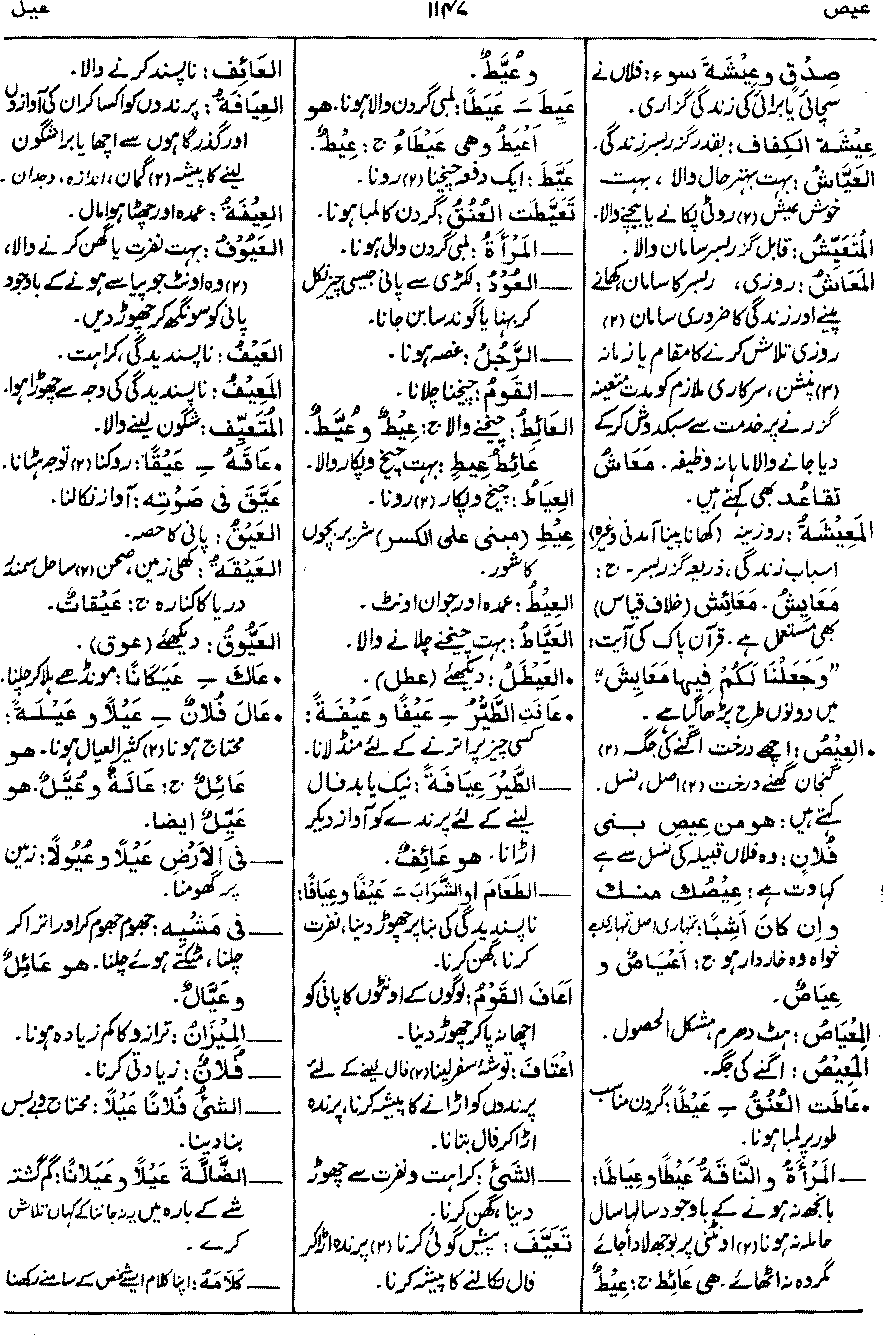 عیص
۱۱۴۷
عیل
صِدْقٍ وعِیْشَةَ سوء: فلاں نے
سچائی یا برائی کی زندگی گزاری۔
عِیْشَة الکِفَاف: بقدر گزر بسر زندگی۔
العَیَّاشُ: بہت بہتر حال والا ، بہت
خوش عیش (۲) روٹی پکانے یا بیچنے والا۔
المُتَعَیِّشُ: قابل گزر بسر سامان والا۔
المَعَاشُ: روزی، بسر کا سامان، کھانے
پینے اور زندگی کا ضروری سامان (۲)
روزی تلاش کرنے کا مقام یا زمانہ
(۳) پنشن، سرکاری ملازم کو مدت متعینہ
گزرنے پر خدمت سے سبکدوش کرکے
دیا جانے والا ماہانہ وظیفہ۔ مَعَاشُ
تقاعُد بھی کہتے ہیں۔
المَعِیْشَةُ: روزینہ (کھانا پینا آمدنی وغیرہ)
اسباب زندگی، ذریعہ گزر بسر۔ ج:
مَعَایِشُ۔ مَعَائِش (خلاف قیاس)
بھی مستعمل ہے۔ قرآن پاک کی آیت:
”وَجَعَلْنَا لَکُمْ فِیهَا مَعَایِشَ“
میں دونوں طرح پڑھا گیا ہے۔
• العِیْصُ: اچھے درخت اگنے کی جگہ (۲)
گنجان گھنے درخت (۲) اصل، نسل۔
کہتے ہیں: هو من عِیصِ بنی
فُلَانٍ: وہ فلاں قبیلہ کی نسل سے ہے
کہاوت ہے: عِیْصُكَ منك
وإن کَانَ أَشِبًا: تمہاری اصل تمہاری ہے
خواہ وہ خاردار ہو ج: أَعْیَاصٌ و
عِیَاصٌ۔
المِعْیَاصُ: ہٹ دھرم، مشکل الحصول۔
المَعِیْصُ: اگنے کی جگہ۔
• عَاطَت العُنُقُ ـِ عَیْطًا: گردن مناسب
طور پر لمبا ہونا۔
— المَرْأَةُ والنَّاقَةُ عَیْطًا وعِیَاطًا:
بانجھ نہ ہونے کے باوجود سالہا سال
حاملہ نہ ہونا (۲) اونٹنی پر بوجھ لادا جائے
مگر وہ نہ اٹھائے۔ هی عَائِط ج: عِیْطٌ
وعُیَّطٌ۔
عَیِطَ ـَ عَیَطًا: لمبی گردن والا ہونا۔ هو
أَعْیَطُ وهی عَیْطَاءُ ج: عِیْطٌ۔
عَیَّطَ: ایک دفعہ چیخنا (۲) رونا۔
تَعَیَّطَت العُنُقُ: گردن کا لمبا ہونا۔
— المَرْأَةُ: لمبی گردن والی ہونا۔
— العُوْدُ: لکڑی سے پانی جیسی چیز نکل
کر بہنا یا گوند سا بن جانا۔
— الرَّجُلُ: غصہ ہونا۔
— القَومُ: چیخنا چلانا۔
العَائِطُ: چیخنے والا ج: عِیْطٌ وعُیَّطٌ۔
عَائِطُ عِیطٍ: بہت چیخ و پکار والا۔
العِیَاطُ: چیخ و پکار (۲) رونا۔
عِیْطِ (مبنی علی الکسر) شریر بچوں
کا شور۔
العِیْطُ: عمدہ اور جوان اونٹ۔
العَیَّاطُ: بہت چیخنے چلانے والا۔
• العَیْطَلُ: دیکھئے (عطل)۔
• عَافَتِ الطَّیْرُ ـِ عَیْفًا وعَیْفَةً:
کسی چیز پر اترنے کے لئے منڈلانا۔
— الطَّیْرَ عِیَافَةً: نیک یا بد فال
لینے کے لئے پرندے کو آواز دیکر
اڑانا۔ هو عَائِفٌ۔
— الطَّعَامَ أوالشَّرَابَ ـَ عَیْفًا وعِیَافًا:
ناپسندیدگی کی بنا پر چھوڑ دینا، نفرت
کرنا، گھن کرنا۔
أَعَافَ القَوْمُ: لوگوں کے اونٹوں کا پانی کو
اچھا نہ پاکر چھوڑ دینا۔
اعْتَافَ: توشۂ سفر لینا (۲) فال لینے کے لئے
پرندوں کو اڑانے کا پیشہ کرنا، پرندہ
اڑا کر فال بتانا۔
— الشَّیْءَ: کراہت و نفرت سے چھوڑ
دینا، گھن کرنا۔
تَعَیَّفَ: پیشین گوئی کرنا (۲) پرندہ اڑا کر
فال نکالنے کا پیشہ کرنا۔
العَائِف: ناپسند کرنے والا۔
العِیَافَةُ: پرندوں کو اکسا کر ان کی آوازوں
اور گذرگاہوں سے اچھا یا برا شگون
لینے کا پیشہ (۲) گمان، اندازہ، وجدان۔
العِیْفَةُ: عمدہ اور چھٹا ہوا مال۔
العَیُوْفُ: بہت نفرت یا گھن کرنے والا،
(۲) وہ اونٹ جو پیاسے ہونے کے باوجود
پانی کو سونگھ کر چھوڑ دیں۔
العَیْفُ: ناپسندیدگی، کراہت۔
المَعِیْفُ: ناپسندیدگی کی وجہ سے چھوڑا ہوا۔
المُتَعَیِّف: شگون لینے والا۔
• عَاقَهُ ـِ عَیْقًا: روکنا (۲) توجہ ہٹانا۔
عَیَّقَ فی صَوْتِهِ: آواز نکالنا۔
العَیْقُ: پانی کا حصہ۔
العَیْقَةُ: کھلی زمین، صحن (۲) ساحل سمندر
دریا کا کنارہ ج: عَیْقَاتٌ۔
العَیُّوقُ: دیکھئے (عوق)۔
• عَاكَ ـِ عَیَکَانًا: مونڈھے ہلا کر چلنا۔
• عَالَ فُلَانٌ ـِ عَیْلًا وعَیْلَةً:
محتاج ہونا (۲) کثیر العیال ہونا۔ هو
عَائِلٌ ج: عَالَةٌ وعُیَّلٌ۔ هو
عَیِّلٌ ایضا۔
— فی الأَرْضِ عَیْلًا وعُیُولًا: زمین
پر گھومنا۔
— فی مَشْیِهِ: جھوم جھوم کر اور اترا کر
چلنا، مٹکتے ہوئے چلنا۔ هو عَائِلٌ
وعَیَّالٌ۔
— المِیْزَانُ: ترازو کا کم زیادہ ہونا۔
— فُلَانٌ: زیادتی کرنا۔
— الشَّیْءُ فُلَانًا عَیْلًا: محتاج و بے بس
بنا دینا۔
— الضَّالَّةَ عَیْلًا وعَیَلَانًا: گم گشتہ
شے کے بارہ میں یہ نہ جاننا کہ کہاں تلاش
کرے۔
— کَلَامَهُ: اپنا کلام ایسے شخص کے سامنے رکھنا